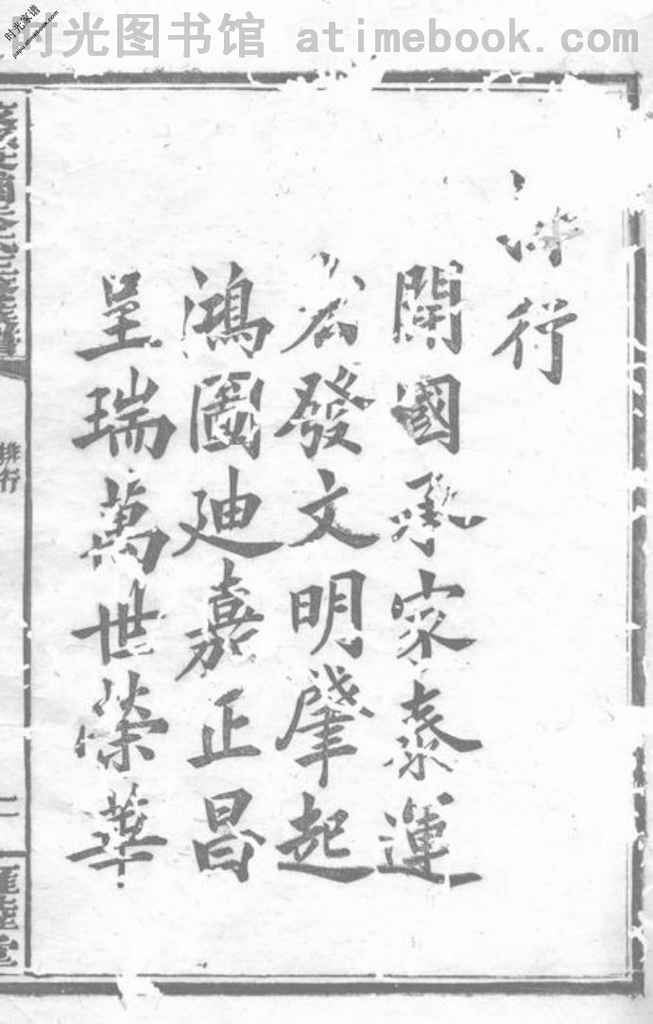 时光图书馆 atimebook.com
时光家谱
行
開國承家泰運
發文明肇起
鴻圖迪嘉正昌
呈瑞萬世榮華
排行
二